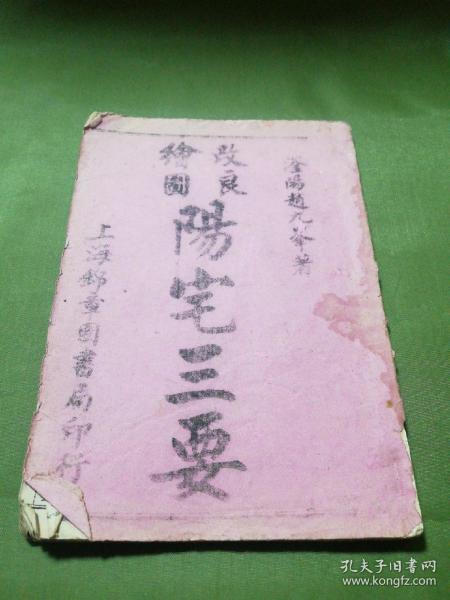 荃陽趙九峯著
改良
繪圖
陽宅三要
上海錦章圖書局印行
孔夫子旧书网
www.kongfz.com